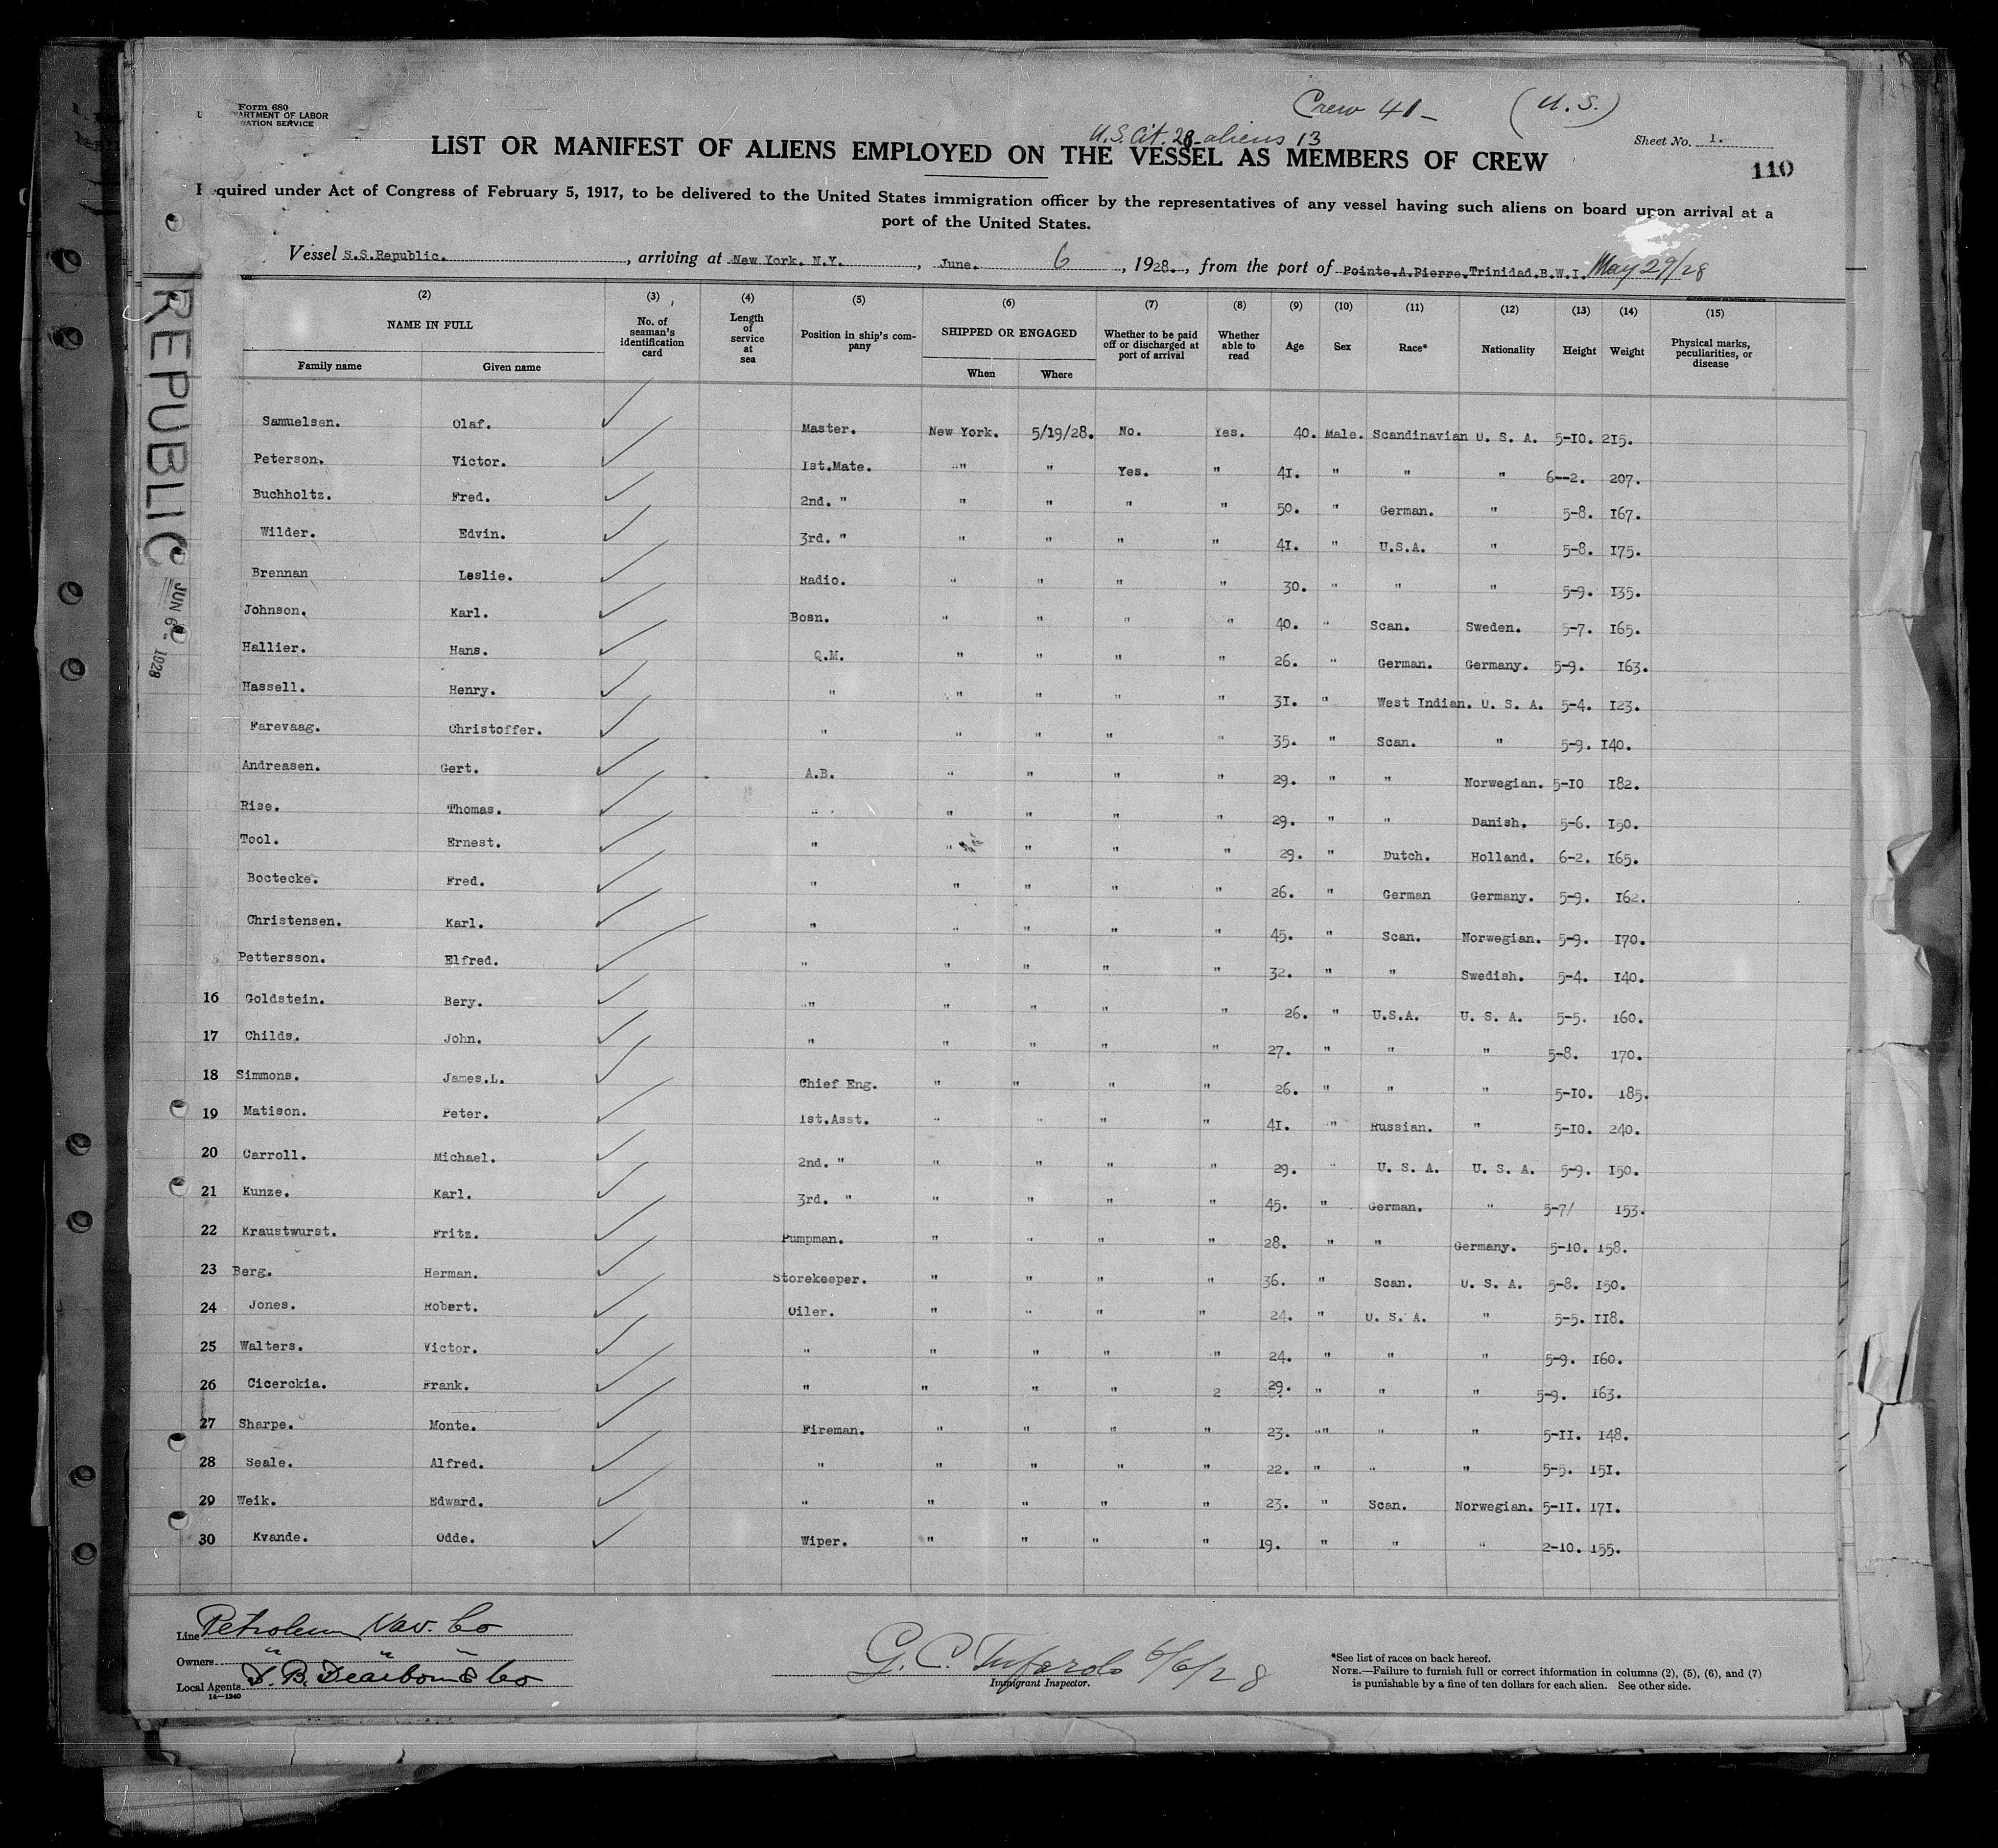 Form 680
ARTMENT OF LABOR
ATION SERVICE
Crew 41 - (U. S.)
U.S. Cit. 28 - aliens 13
LIST OR MANIFEST OF ALIENS EMPLOYED ON THE VESSEL AS MEMBERS OF CREW
Sheet No. 1.
110
quired under Act of Congress of February 5, 1917, to be delivered to the United States immigration officer by the representatives of any vessel having such aliens on board upon arrival at a
port of the United States.
Vessel S.S.Republic., arriving at New York. N.Y., June. 6, 1928., from the port of Pointe.A.Pierre.Trinidad.B.W.I. May 29/28
REPUBLIC
JUN 6 - 1928
(2) (3) (4) (5) (6) (7) (8) (9) (10) (11) (12) (13) (14) (15)
NAME IN FULL No. of seaman's identification card Length of service at sea Position in ship's company SHIPPED OR ENGAGED Whether to be paid off or discharged at port of arrival Whether able to read Age Sex Race* Nationality Height Weight Physical marks, peculiarities, or disease
Family name Given name When Where
Samuelsen. Olaf. Master. New York. 5/19/28. No. Yes. 40. Male. Scandinavian U. S. A. 5-10. 215.
Peterson. Victor. 1st.Mate. " " Yes. " 41. " " " 6--2. 207.
Buchholtz. Fred. 2nd. " " " " " 50. " German. " 5-8. 167.
Wilder. Edvin. 3rd. " " " " " 41. " U.S.A. " 5-8. 175.
Brennan Leslie. Radio. " " " " 30. " " " 5-9. 135.
Johnson. Karl. Bosn. " " " " 40. " Scan. Sweden. 5-7. 165.
Hallier. Hans. Q.M. " " " " 26. " German. Germany. 5-9. 163.
Hassell. Henry. " " " " " 31. " West Indian. U. S. A. 5-4. 123.
Farevaag. Christoffer. " " " " " 35. " Scan. " 5-9. 140.
Andreasen. Gert. A.B. " " " " 29. " " Norwegian. 5-10 182.
Rise. Thomas. " " " " " 29. " " Danish. 5-6. 150.
Tool. Ernest. " " " " " 29. " Dutch. Holland. 6-2. 165.
Boctecke. Fred. " " " " " 26. " German Germany. 5-9. 162.
Christensen. Karl. " " " " " 45. " Scan. Norwegian. 5-9. 170.
Pettersson. Elfred. " " " " " 32. " " Swedish. 5-4. 140.
16 Goldstein. Bery. " " " " " 26. " U.S.A. U. S. A. 5-5. 160.
17 Childs. John. " " " " " 27. " " " 5-8. 170.
18 Simmons. James.L. Chief Eng. " " " " 26. " " " 5-10. 185.
19 Matison. Peter. 1st.Asst. " " " " 41. " Russian. " 5-10. 240.
20 Carroll. Michael. 2nd. " " " " " 29. " U. S. A. U. S. A. 5-9. 150.
21 Kunze. Karl. 3rd. " " " " " 45. " German. " 5-7/ 153.
22 Kraustwurst. Fritz. Pumpman. " " " " 28. " " Germany. 5-10. 158.
23 Berg. Herman. Storekeeper. " " " " 36. " Scan. U. S. A. 5-8. 150.
24 Jones. Robert. Oiler. " " " " 24. " U. S. A. " 5-5. 118.
25 Walters. Victor. " " " " " 24. " " " 5-9. 160.
26 Cicerckia. Frank. " " " " 2 29. " " " 5-9. 163.
27 Sharpe. Monte. Fireman. " " " " 23. "" " " 5-11. 148.
28 Seale. Alfred. " " " " " 22. " " " 5-5. 151.
29 Weik. Edward. " " " " " 23. " Scan. Norwegian. 5-11. 171.
30 Kvande. Odde. Wiper. " " " " 19. " " " 2-10. 155.
Line Petroleum Nav. Co
Owners " " "
Local Agents D. B. Dearborn & Co
14-1240
G. C. Tufarolo 6/6/28
Immigrant Inspector.
*See list of races on back hereof.
NOTE.—Failure to furnish full or correct information in columns (2), (5), (6), and (7)
is punishable by a fine of ten dollars for each alien. See other side.